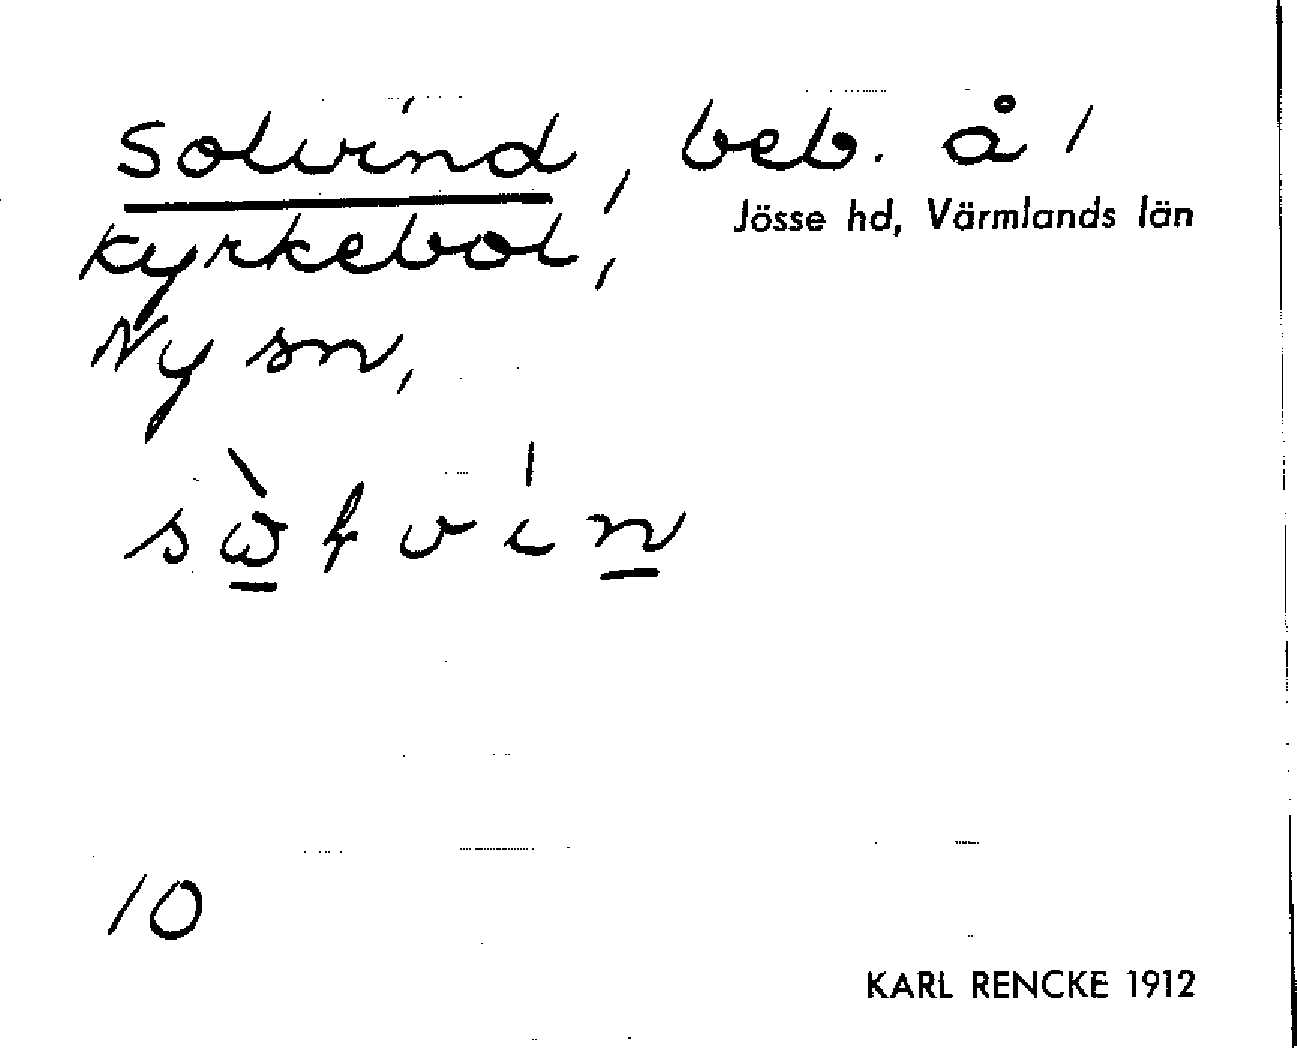 Solvind, beb. å 1
Jösse hd, Värmlands län
Kyrkebol,
Ny sn,
10
KARL RENCKE 1912